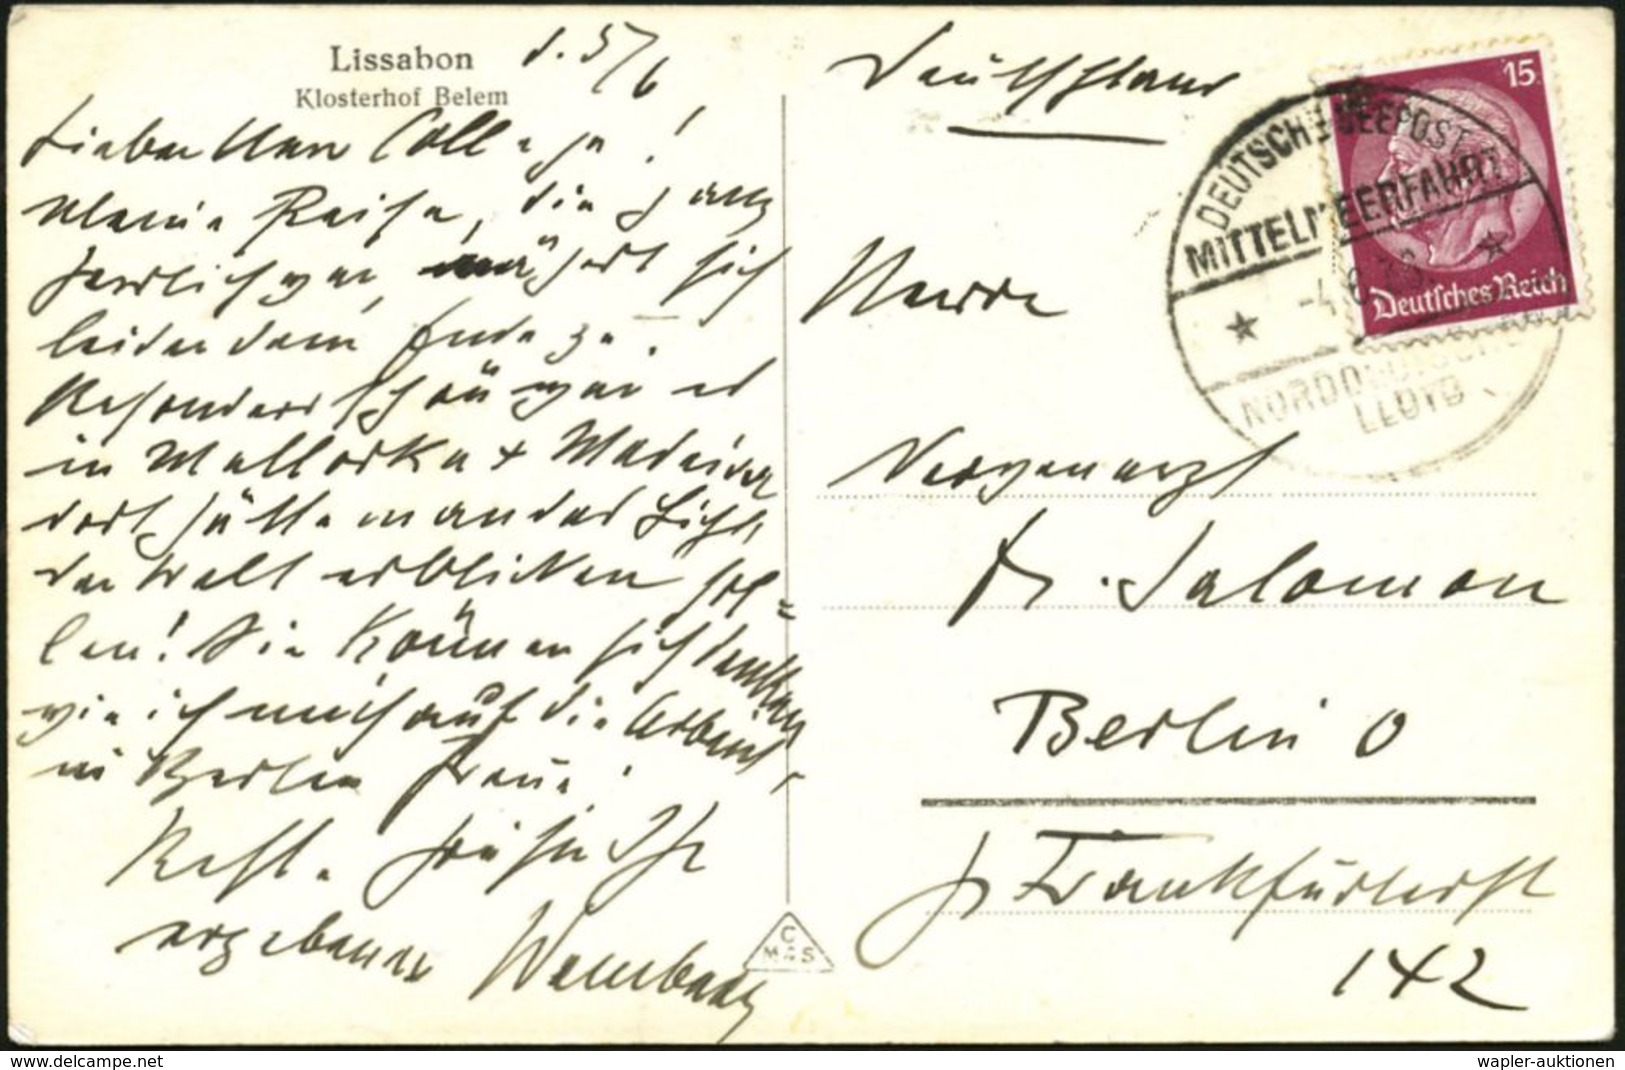 Lissabon
Klosterhof Belem
d. 5/6
Lieber Herr Kollege!
Meine Reise, die ganz
herrlich war, nähert sich
leider dem Ende zu.
Besonders schön war es
in Mallorka + Madeira
dort hätte man das Licht
der Welt erblicken sol=
len! Sie können sich denken
wie ich mich auf die Arbeit
in Berlin freue!
Beste Grüsse Ihr
ergebener
Deutschland
Herrn
Nervenarzt
Dr. Salomon
Berlin O
Gr. Frankfurterst
142
15
Deutsches Reich
DEUTSCHE SEEPOST
MITTELMEERFAHRT
NORDDEUTSCHER
LLOYD
C
M & S
www.delcampe.net
wapler-auktionen